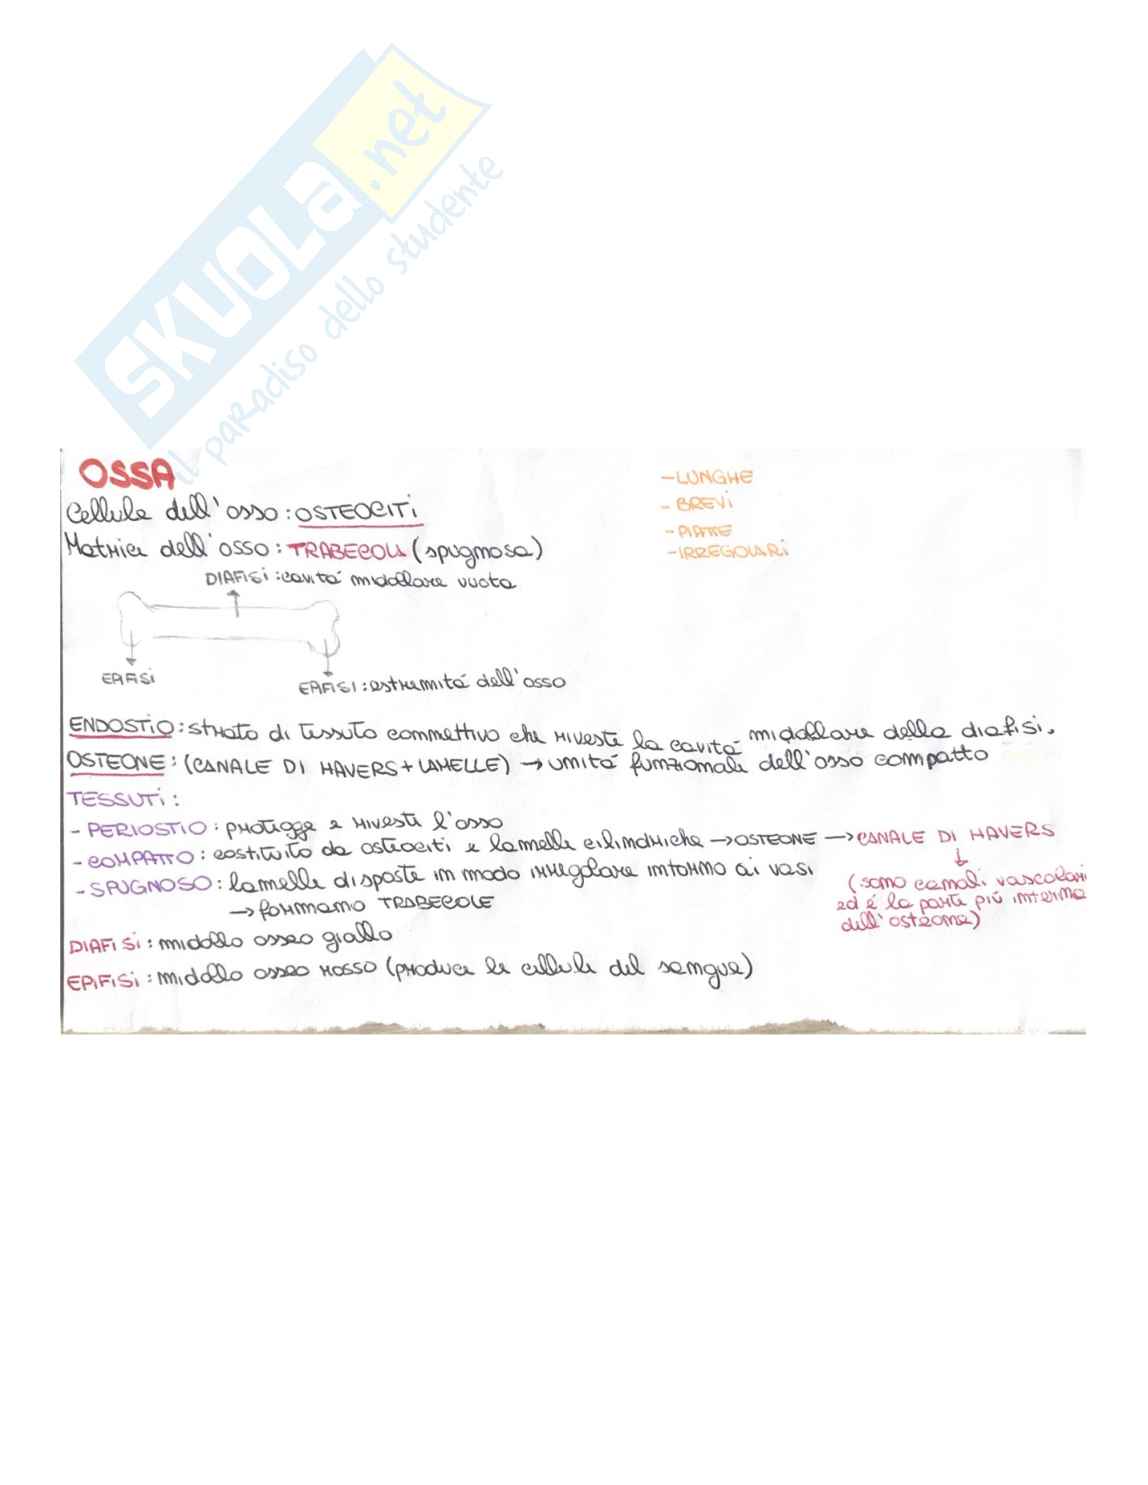 SKUOLa.net
il paradiso dello studente
OSSA
Cellule dell'osso: OSTEOCITI
Matrice dell'osso: TRABECOLE (spugnosa)
- LUNGHE
- BREVI
- PIATTE
- IRREGOLARI
DIAFISI: cavità midollare vuota
EPIFISI
EPIFISI: estremità dell'osso
ENDOSTIO: strato di tessuto connettivo che riveste la cavità midollare della diafisi.
OSTEONE: (CANALE DI HAVERS + LAMELLE) → unità funzionali dell'osso compatto
TESSUTI:
- PERIOSTIO: protegge e riveste l'osso
- COMPATTO: costituito da osteociti e lamelle cilindriche → OSTEONE → CANALE DI HAVERS
(sono canali vascolari
ed è la parte più interna
dell'osteone)
- SPUGNOSO: lamelle disposte in modo irregolare intorno ai vasi
→ formano TRABECOLE
DIAFISI: midollo osseo giallo
EPIFISI: midollo osseo rosso (produce le cellule del sangue)